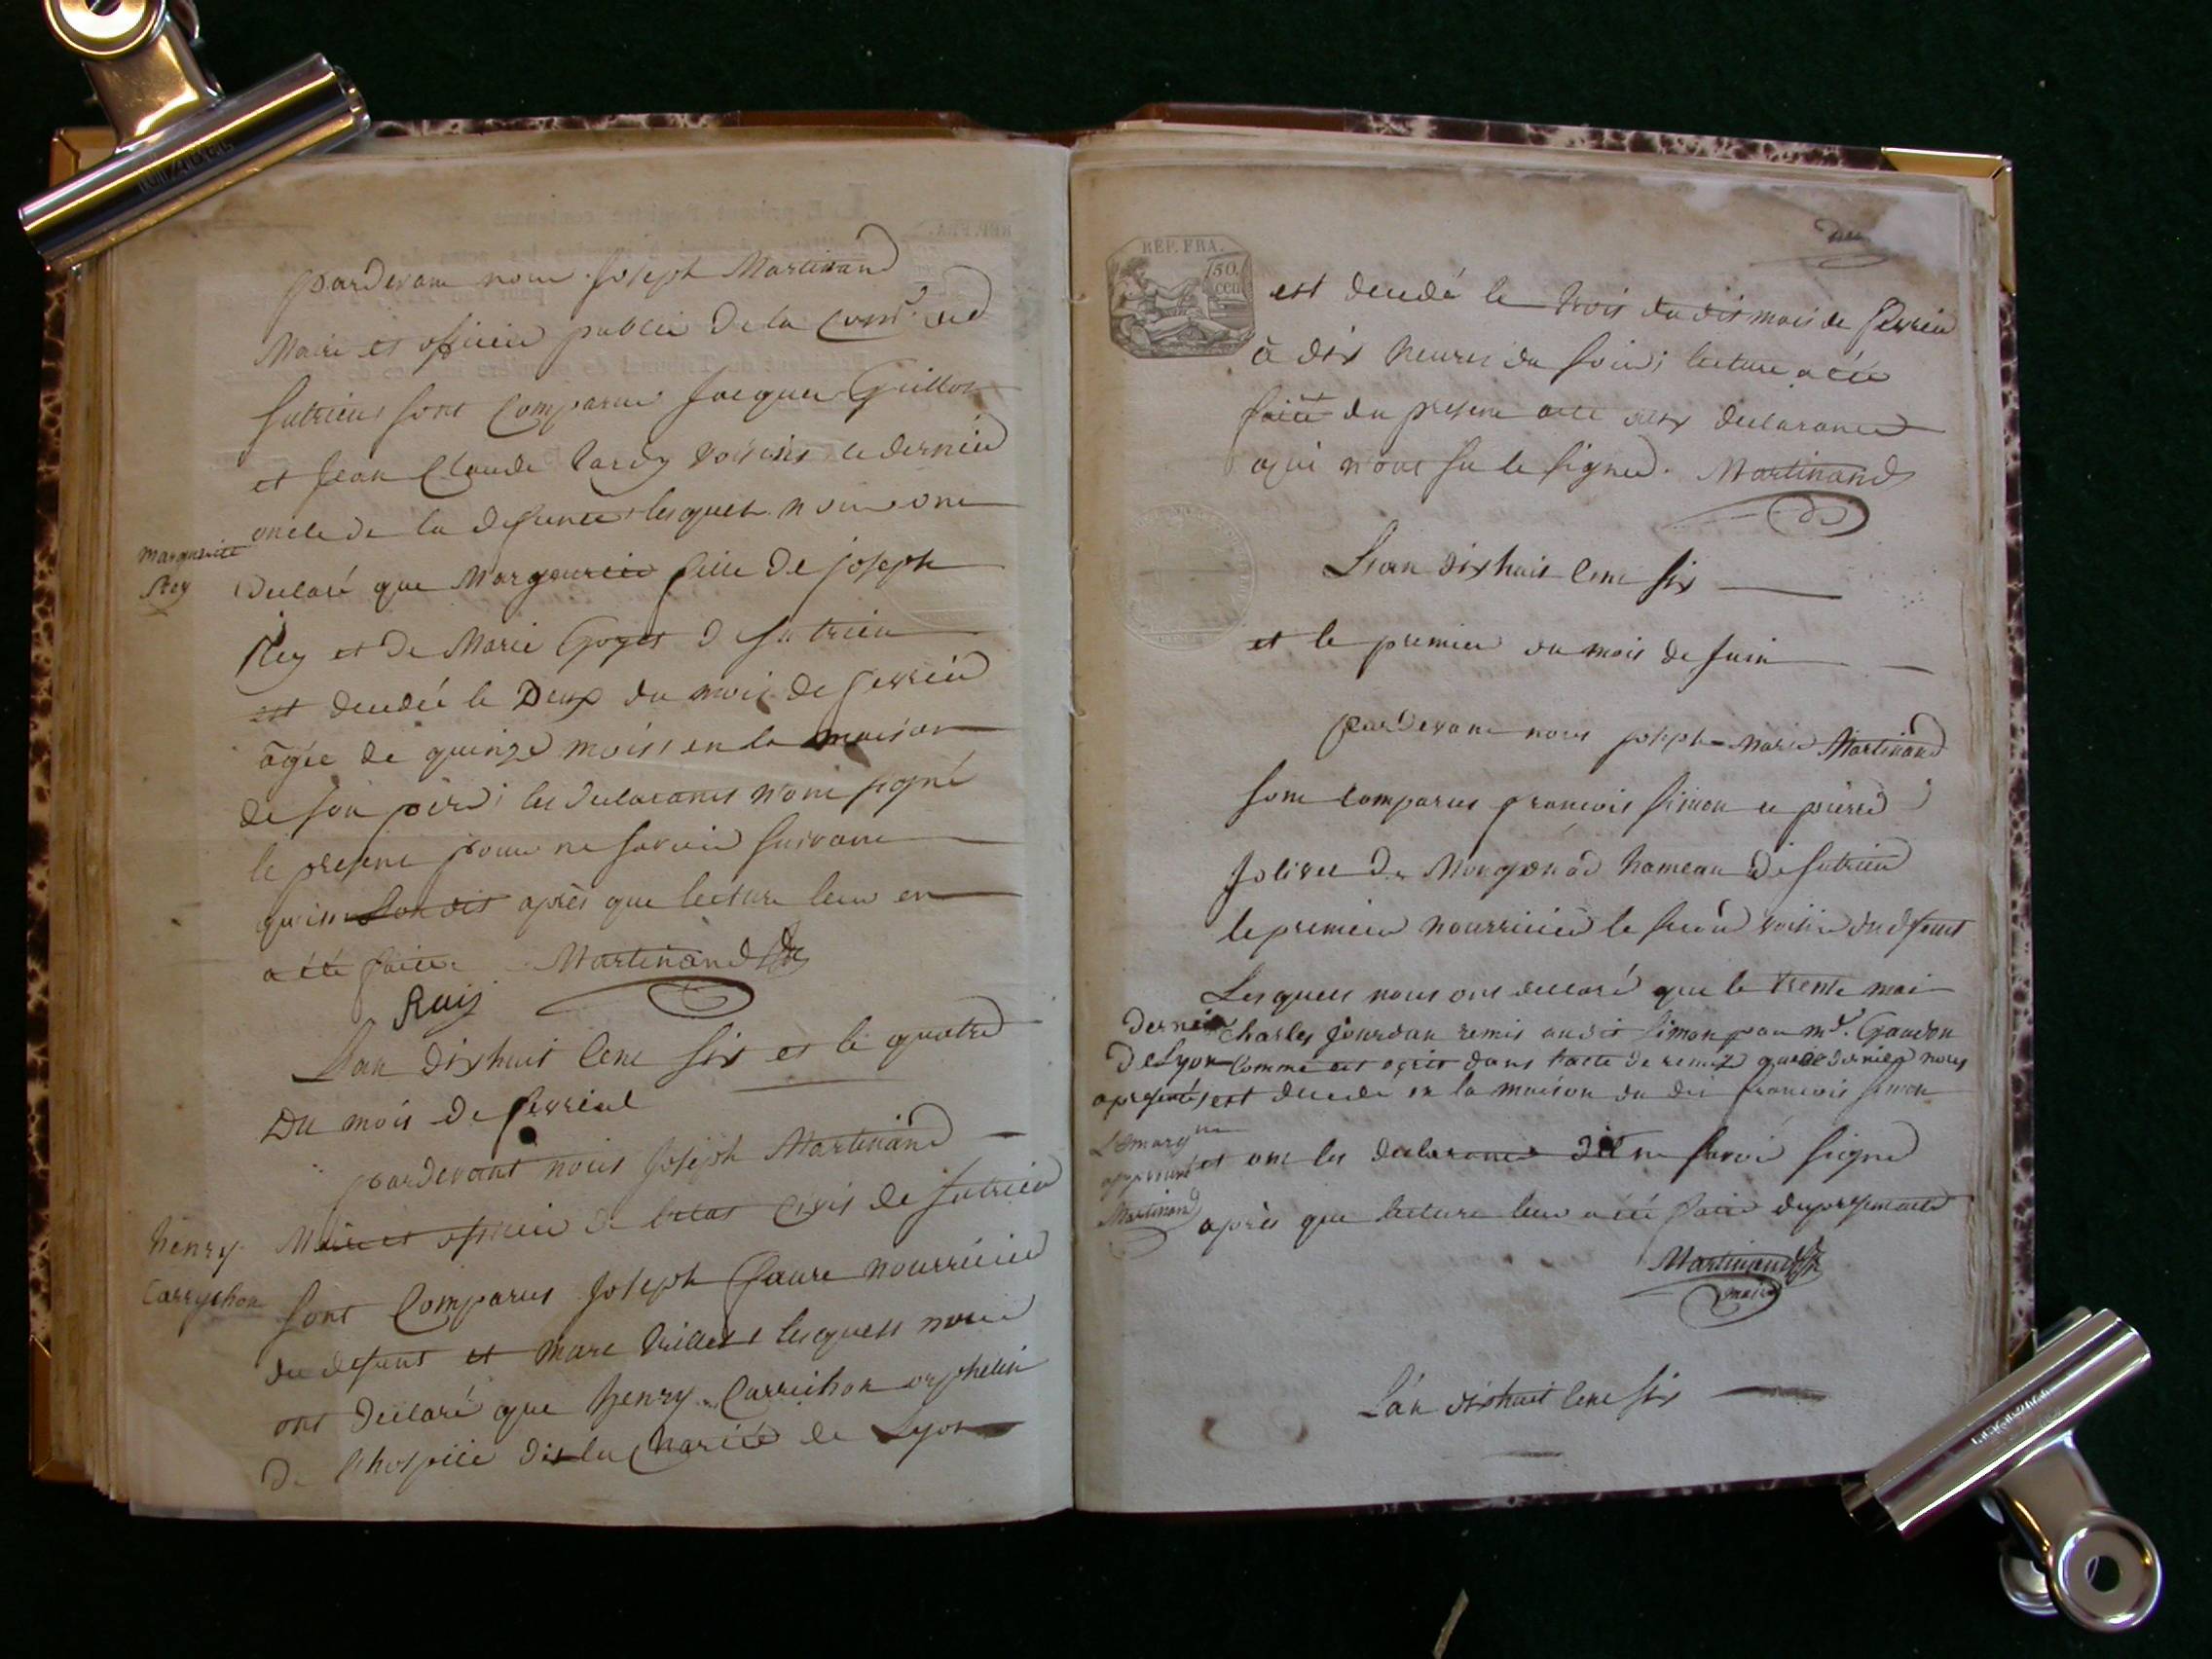 pardevant nous joseph Martinand
Maire et officier public de la Com.e de
Sutrieu sont comparus Jacques Guillot
et Jean Claude Tardy voisins le dernier
oncle de la defunte lesquels nous ont
Marguerite
Rey
declaré que Margeurite fille de joseph
Rey et de Marie Goyet d Sutrieu
est decedée le Deux du mois de fevrier
agée de quinze mois en la maison
de son père; les declarants n'ont signé
le present pour ne savoir suivant
qu'ils l'on dit après que lecture leur en
a été faitte Martinand
L'an dix huit cent six et le quatre
Du mois de fevrier
pardevant nous Joseph Martinand
henry
Carrychon
Maire et officier de l'etat Civis de Sutrieu
sont Comparus Joseph faure nourricier
du defunt et marc Trillet lesquels nous
ont declaré que henry Carrichon orphelin
De l'hospice de la Charité de Lyon
REP. FRA.
50. cen
est decedé le trois du dit mois de fevrier
à dix heures du soir; lecture a été
faitte du present acte aux declarants
qui n'ont su le signer. Martinand
L'an dix huit cent six
et le premier du mois de Juin
pardevant nous joseph-marie Martinand
sont comparus francois Simon et pierre
Jolivet de Mongonod hameau de Sutrieu
le premier nourricier le second voisin du defunt
Lesquels nous ont declaré que le trente mai
dernier Charles Jourdan remis audit Simon par mr. Gaudon
de Lyon Comme est ecrit dans l'acte de remise que ce dernier nous
a presenté, est decedé en la maison du dit francois Simon
L'Emargue
approuvé
Martinand
et ont les declarants dit ne savoir signer
après que lecture leur a été faite du present acte
Martinand
maire
L'an dix huit cent six